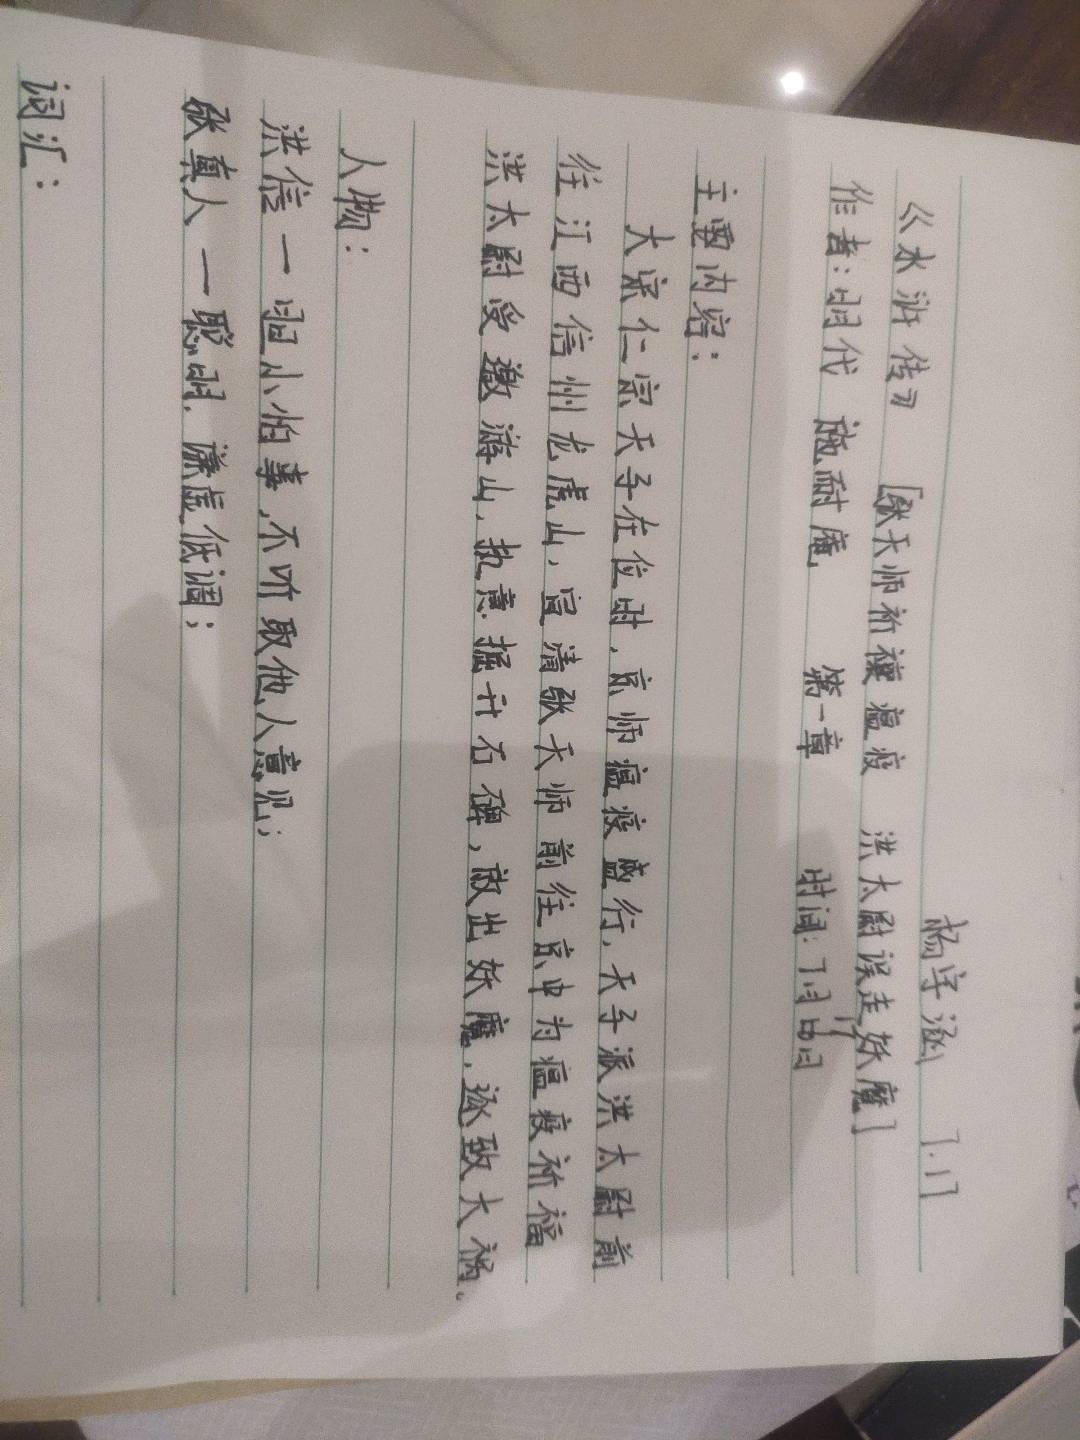 杨宇涵 7.17
《水浒传》 [张天师祈禳瘟疫 洪太尉误走妖魔]
作者:明代 施耐庵 第一章 时间:7月17日
主要内容:
大宗仁宗天子在位时,京师瘟疫盛行,天子派洪太尉前
往江西信州龙虎山,宣请张天师前往京中为瘟疫祈福
洪太尉受邀游山,执意掘开石碑,放出妖魔,遂致大祸.
人物:
洪信一胆小怕事,不听取他人意见;
张真人一聪明.谦虚低调;
词汇: